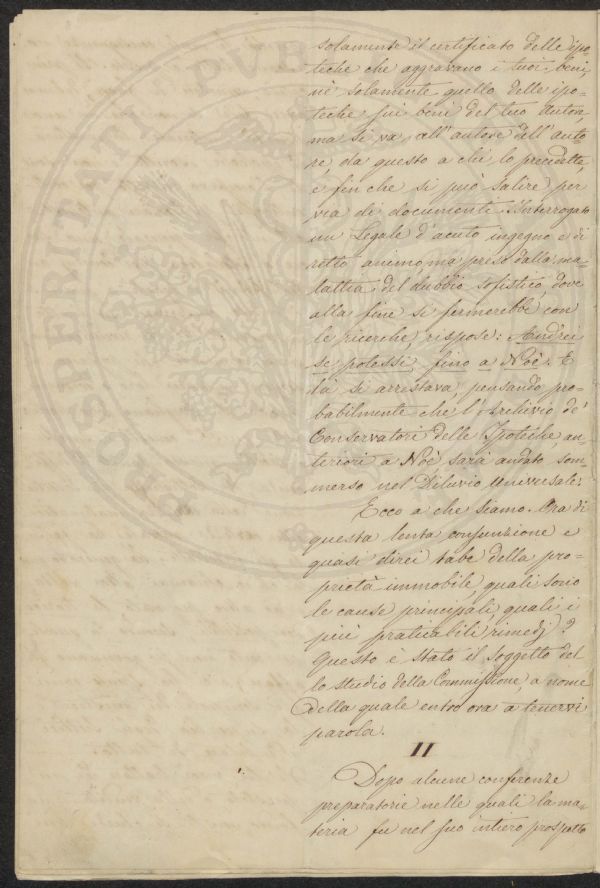 solamente il certificato delle ipo
teche che aggravano i tuoi beni,
nè solamente quello delle ipo=
teche sui beni del tuo autore,
ma si va all'autore dell'auto
re, da questo a chi lo precedette,
e fin che si può salire per
via di documenti. Interrogato
un Legale d'acuto ingegno e di
retto animo, ma preso dalla ma=
lattia del dubbio sofistico, dove
alla fine si fermerebbe con
le ricerche, rispose: Andrei
se potessi, fino a Noè. E
là si arrestava, pensando, pro=
babilmente che l'Archivio de'
Conservatori delle Ipoteche an
teriori a Noè, sarà andato som
merso nel Diluvio universale.
Ecco a che siamo. Ora di
questa lenta consunzione e
quasi direi tabe della pro=
prietà immobile, quali sono
le cause principali, quali i
più praticabili rimedj?
Questo è stato il soggetto del
lo studio della Commissione, a nome
della quale entro ora a tenervi
parola.
II
Dopo alcune conferenze
preparatorie nelle quali la ma=
teria fu nel suo intiero prospetto
PROSPERITATI PVB